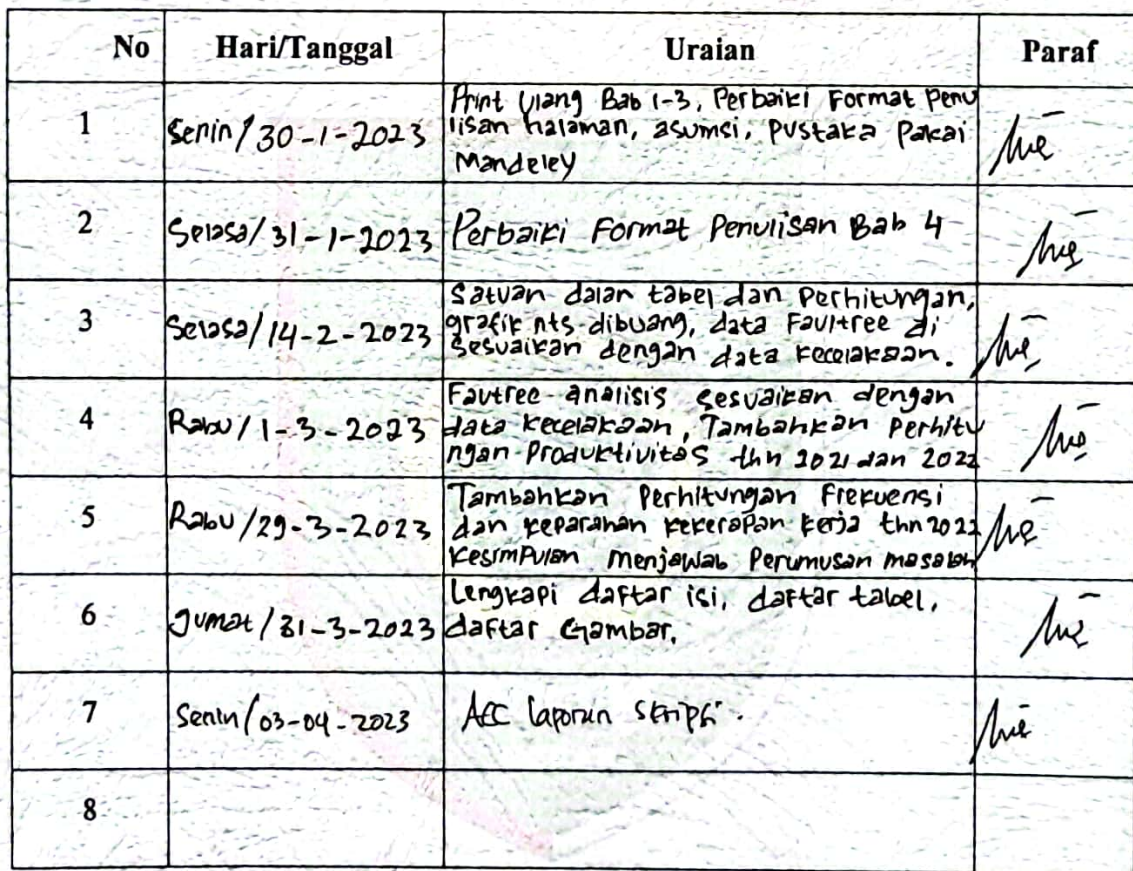 No Hari/Tanggal Uraian Paraf
1 Senin/30-1-2023 Print Ulang Bab 1-3, Perbaiki Format Penu
lisan halaman, asumsi, pustaka Pakai
Mandeley
2 Selasa/31-1-2023 Perbaiki Format Penulisan Bab 4
3 Selasa/14-2-2023 Satuan dalan tabel dan Perhitungan,
grafik nts dibuang, data Faultree di
sesuaikan dengan data kecelakaan.
4 Rabu/1-3-2023 Fautree analisis sesuaikan dengan
data kecelakaan, Tambahkan Perhitu
ngan Produktivitas thn 2021 dan 2022
5 Rabu/29-3-2023 Tambahkan Perhitungan Frekuensi
dan keparahan kekerapan kerja thn 2022
Kesimpulan menjawab Perumusan masalah
6 Jumat/31-3-2023 Lengkapi daftar isi, daftar tabel,
daftar Gambar.
7 Senin/03-04-2023 Acc laporan skripsi.
8